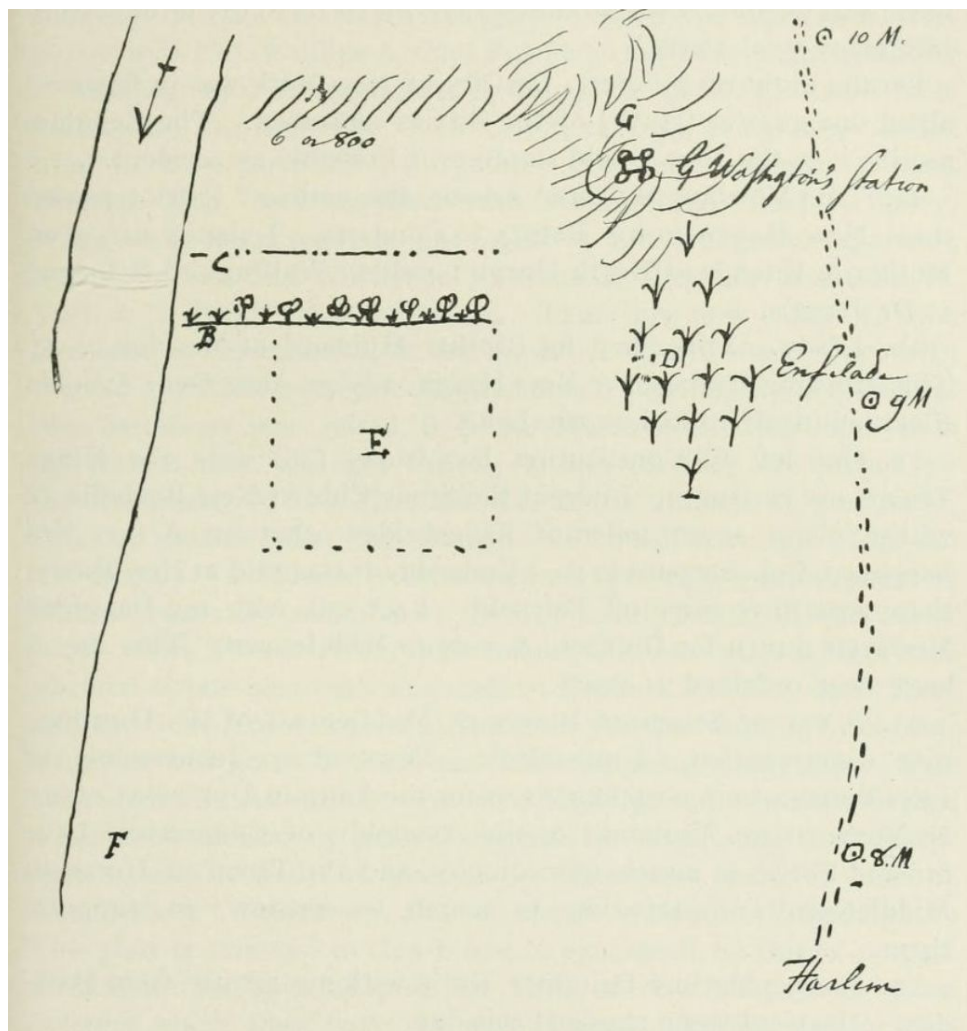 10 M.
A
6 or 800
G
G Washington's Station
C
B
D
Enfilade
9 M
E
F
8. M
Harlem